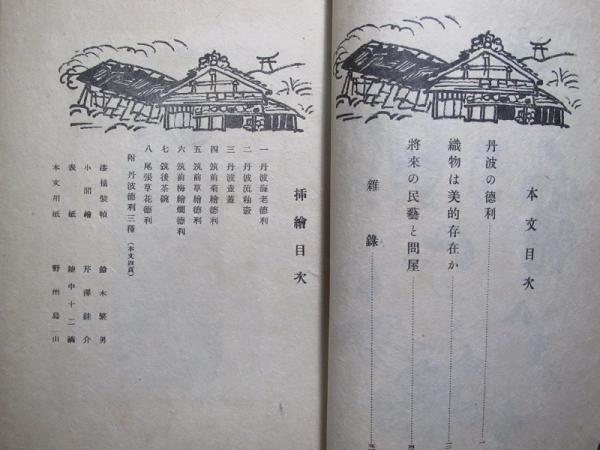 本文目次
丹波の德利……一
織物は美的存在か……三
將來の民藝と問屋
雜錄
挿繪目次
一 丹波海老德利
二 丹波流釉壺
三 丹波壺蓋
四 筑前菊繪德利
五 筑前草繪德利
六 筑前梅繪燗德利
七 筑後茶碗
八 尾張草花德利
附 丹波德利三種(本文四頁)
漆描裝幀 鈴木繁男
小間繪 芹澤銈介
表紙 越中十二潟
本文用紙 野州烏山